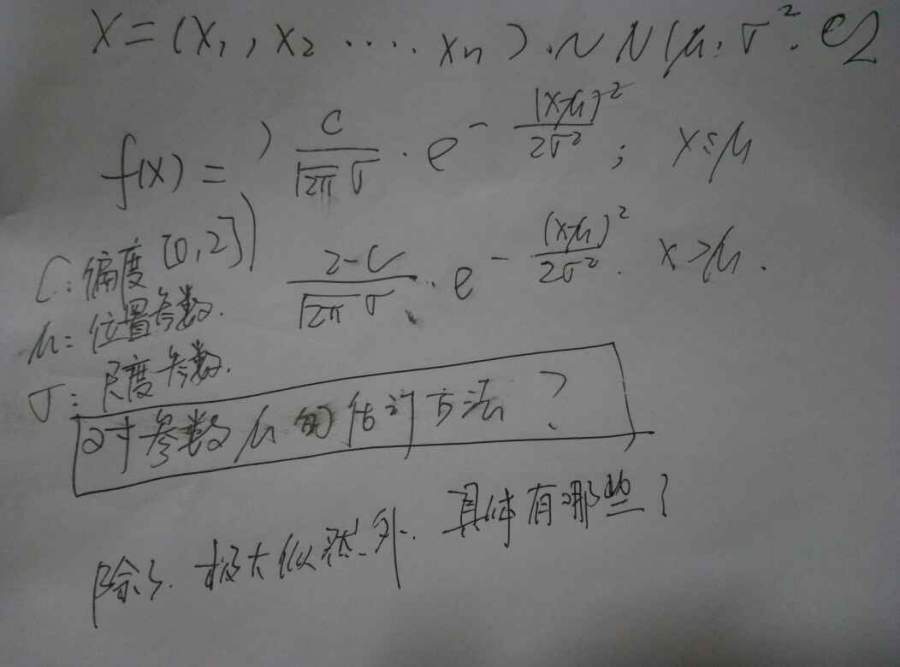 X=(x₁, x₂ ···· xn).~N(μ, σ², c)
f(x) = } c/(√2π σ) · e^-(x-μ)²/2σ² ; x≤μ
(2-c)/(√2π σ) · e^-(x-μ)²/2σ². x>μ.
C:偏度[0,2]
μ:位置参数.
σ:尺度参数.
对参数μ的估计方法?
除了.极大似然外.具体有哪些?